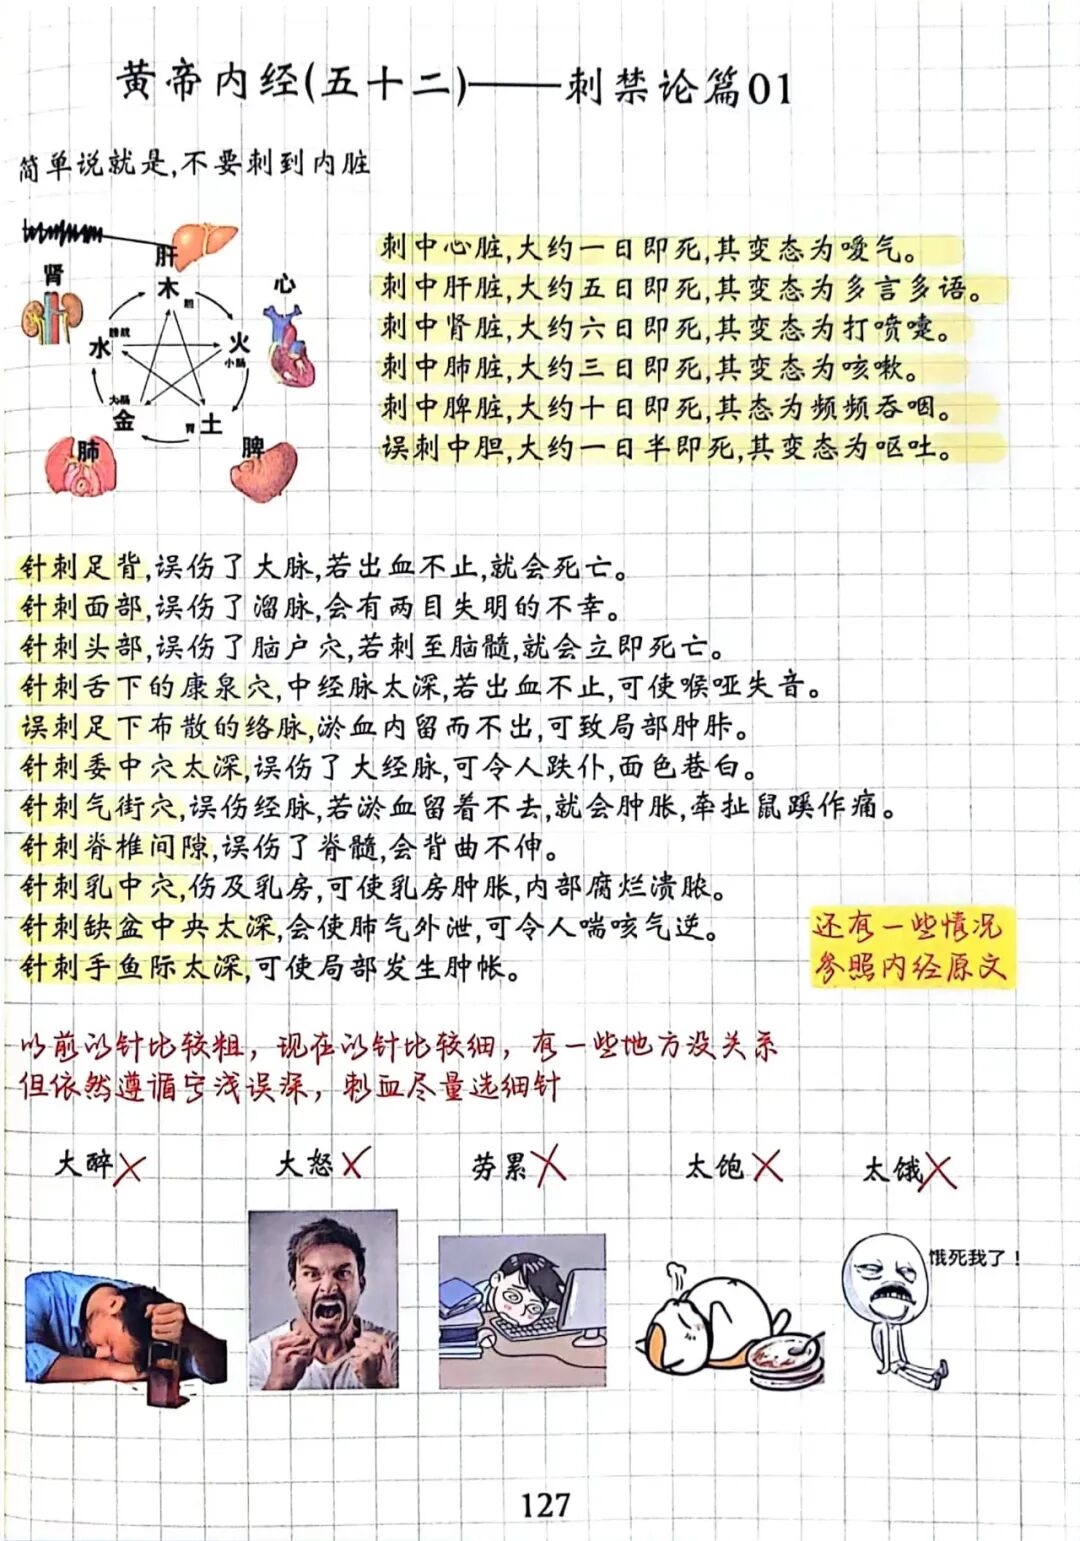 黄帝内经(五十二)——刺禁论篇01
简单说就是,不要刺到内脏
肝
肾
木
胆
心
水
膀胱
火
小肠
大肠
金
胃
土
肺
脾
刺中心脏,大约一日即死,其变态为嗳气。
刺中肝脏,大约五日即死,其变态为多言多语。
刺中肾脏,大约六日即死,其变态为打喷嚏。
刺中肺脏,大约三日即死,其变态为咳嗽。
刺中脾脏,大约十日即死,其态为频频吞咽。
误刺中胆,大约一日半即死,其变态为呕吐。
针刺足背,误伤了大脉,若出血不止,就会死亡。
针刺面部,误伤了溜脉,会有两目失明的不幸。
针刺头部,误伤了脑户穴,若刺至脑髓,就会立即死亡。
针刺舌下的康泉穴,中经脉太深,若出血不止,可使喉哑失音。
误刺足下布散的络脉,淤血内留而不出,可致局部肿胩。
针刺委中穴太深,误伤了大经脉,可令人跌仆,面色巷白。
针刺气街穴,误伤经脉,若淤血留着不去,就会肿胀,牵扯鼠蹊作痛。
针刺脊椎间隙,误伤了脊髓,会背曲不伸。
针刺乳中穴,伤及乳房,可使乳房肿胀,内部腐烂溃脓。
针刺缺盆中央太深,会使肺气外泄,可令人喘咳气逆。
针刺手鱼际太深,可使局部发生肿帐。
还有一些情况
参照内经原文
以前的针比较粗，现在的针比较细，有一些地方没关系
但依然遵循宁浅误深，刺血尽量选细针
大醉 大怒 劳累 太饱 太饿
饿死我了！
127